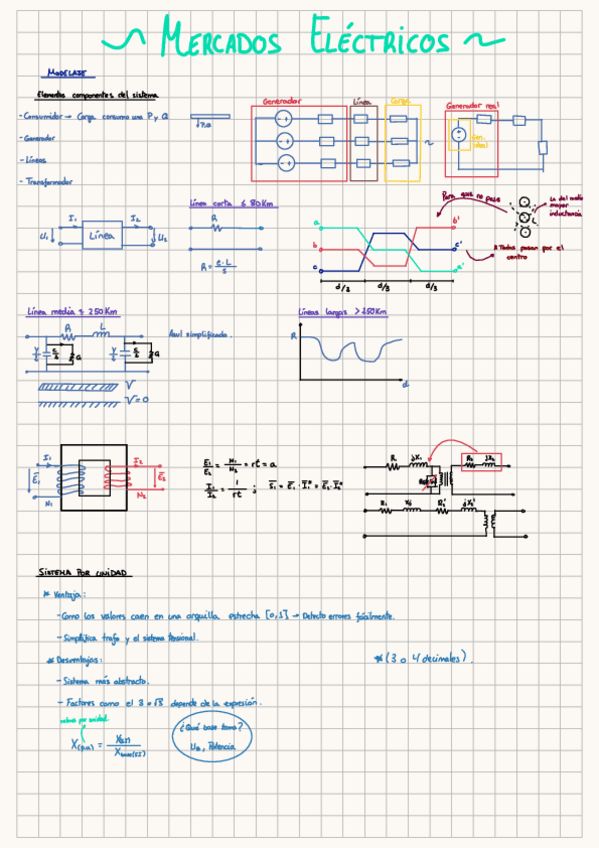 ~ MERCADOS ELÉCTRICOS ~
MODELAJE
Elementos componentes del sistema
-Consumidor → Carga consume una P y Q
-Generador
-Líneas
-Transformador
Generador
Línea
Carga
~
Generador real
Gen. ideal
Línea corta ≤ 80Km
I1
I2
U1
Línea
U2
R
R = ρ·L/S
a
b
c
b'
c'
a'
d/3
d/3
d/3
Para que no pase
La del medio
mayor
inductancia
L
Todas pasan por el
centro
Línea media ≤ 250Km
R
L
G
G
Azul simplificado.
V
V=0
Líneas largas >250Km
R
d
I1
I2
E1
E2
N1
N2
E1/E2 = N1/N2 = rt = a
I1/I2 = 1/rt ; S1 = E1·I1* = E2·I2*
R
jX1
R2
jX2
SISTEMA POR UNIDAD
* Ventaja:
-Como los valores caen en una orquilla estrecha [0,1] → Detecto errores fácilmente.
-Simplifica trafo y el sistema tensional.
* Desventajas:
*(3 o 4 decimales).
-Sistema más abstracto.
-Factores como el 3 o √3 depende de la expresión.
valor por unidad
¿Qué base tomo?
UB, Potencia